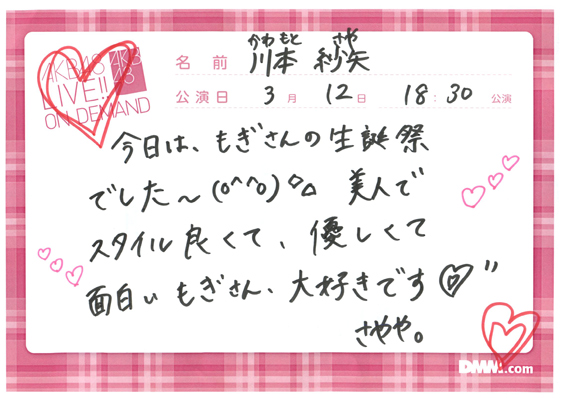 AKB48
LIVE!!
ON DEMAND
AKB
48
かわもと さや
名前 川本 紗矢
公演日 3月 12日 18:30 公演
今日は、もぎさんの生誕祭
でした～(o^^o) 美人で
スタイル良くて、優しくて
面白いもぎさん、大好きです♡"
さやや。
DMM.com